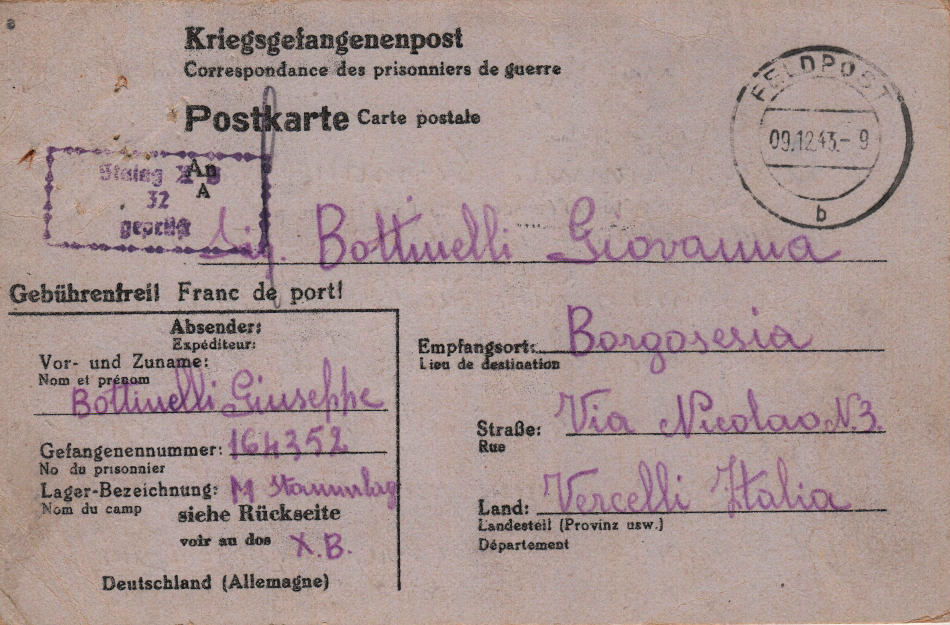 Kriegsgefangenenpost
Correspondance des prisonniers de guerre
Postkarte Carte postale
FELDPOST
09.12.43.- 9
b
Stalag X B
32
geprüft
An
A
Sig. Bottinelli Giovanna
Gebührenfrei! Franc de port!
Absender:
Expéditeur:
Vor- und Zuname:
Nom et prénom
Bottinelli Giuseppe
Gefangenennummer: 164352
No du prisonnier
Lager-Bezeichnung: M Stammlag
Nom du camp
siehe Rückseite
voir au dos X.B.
Deutschland (Allemagne)
Empfangsort: Borgosesia
Lieu de destination
Straße: Via Nicolao N.3.
Rue
Land: Vercelli Italia
Landesteil (Provinz usw.)
Département